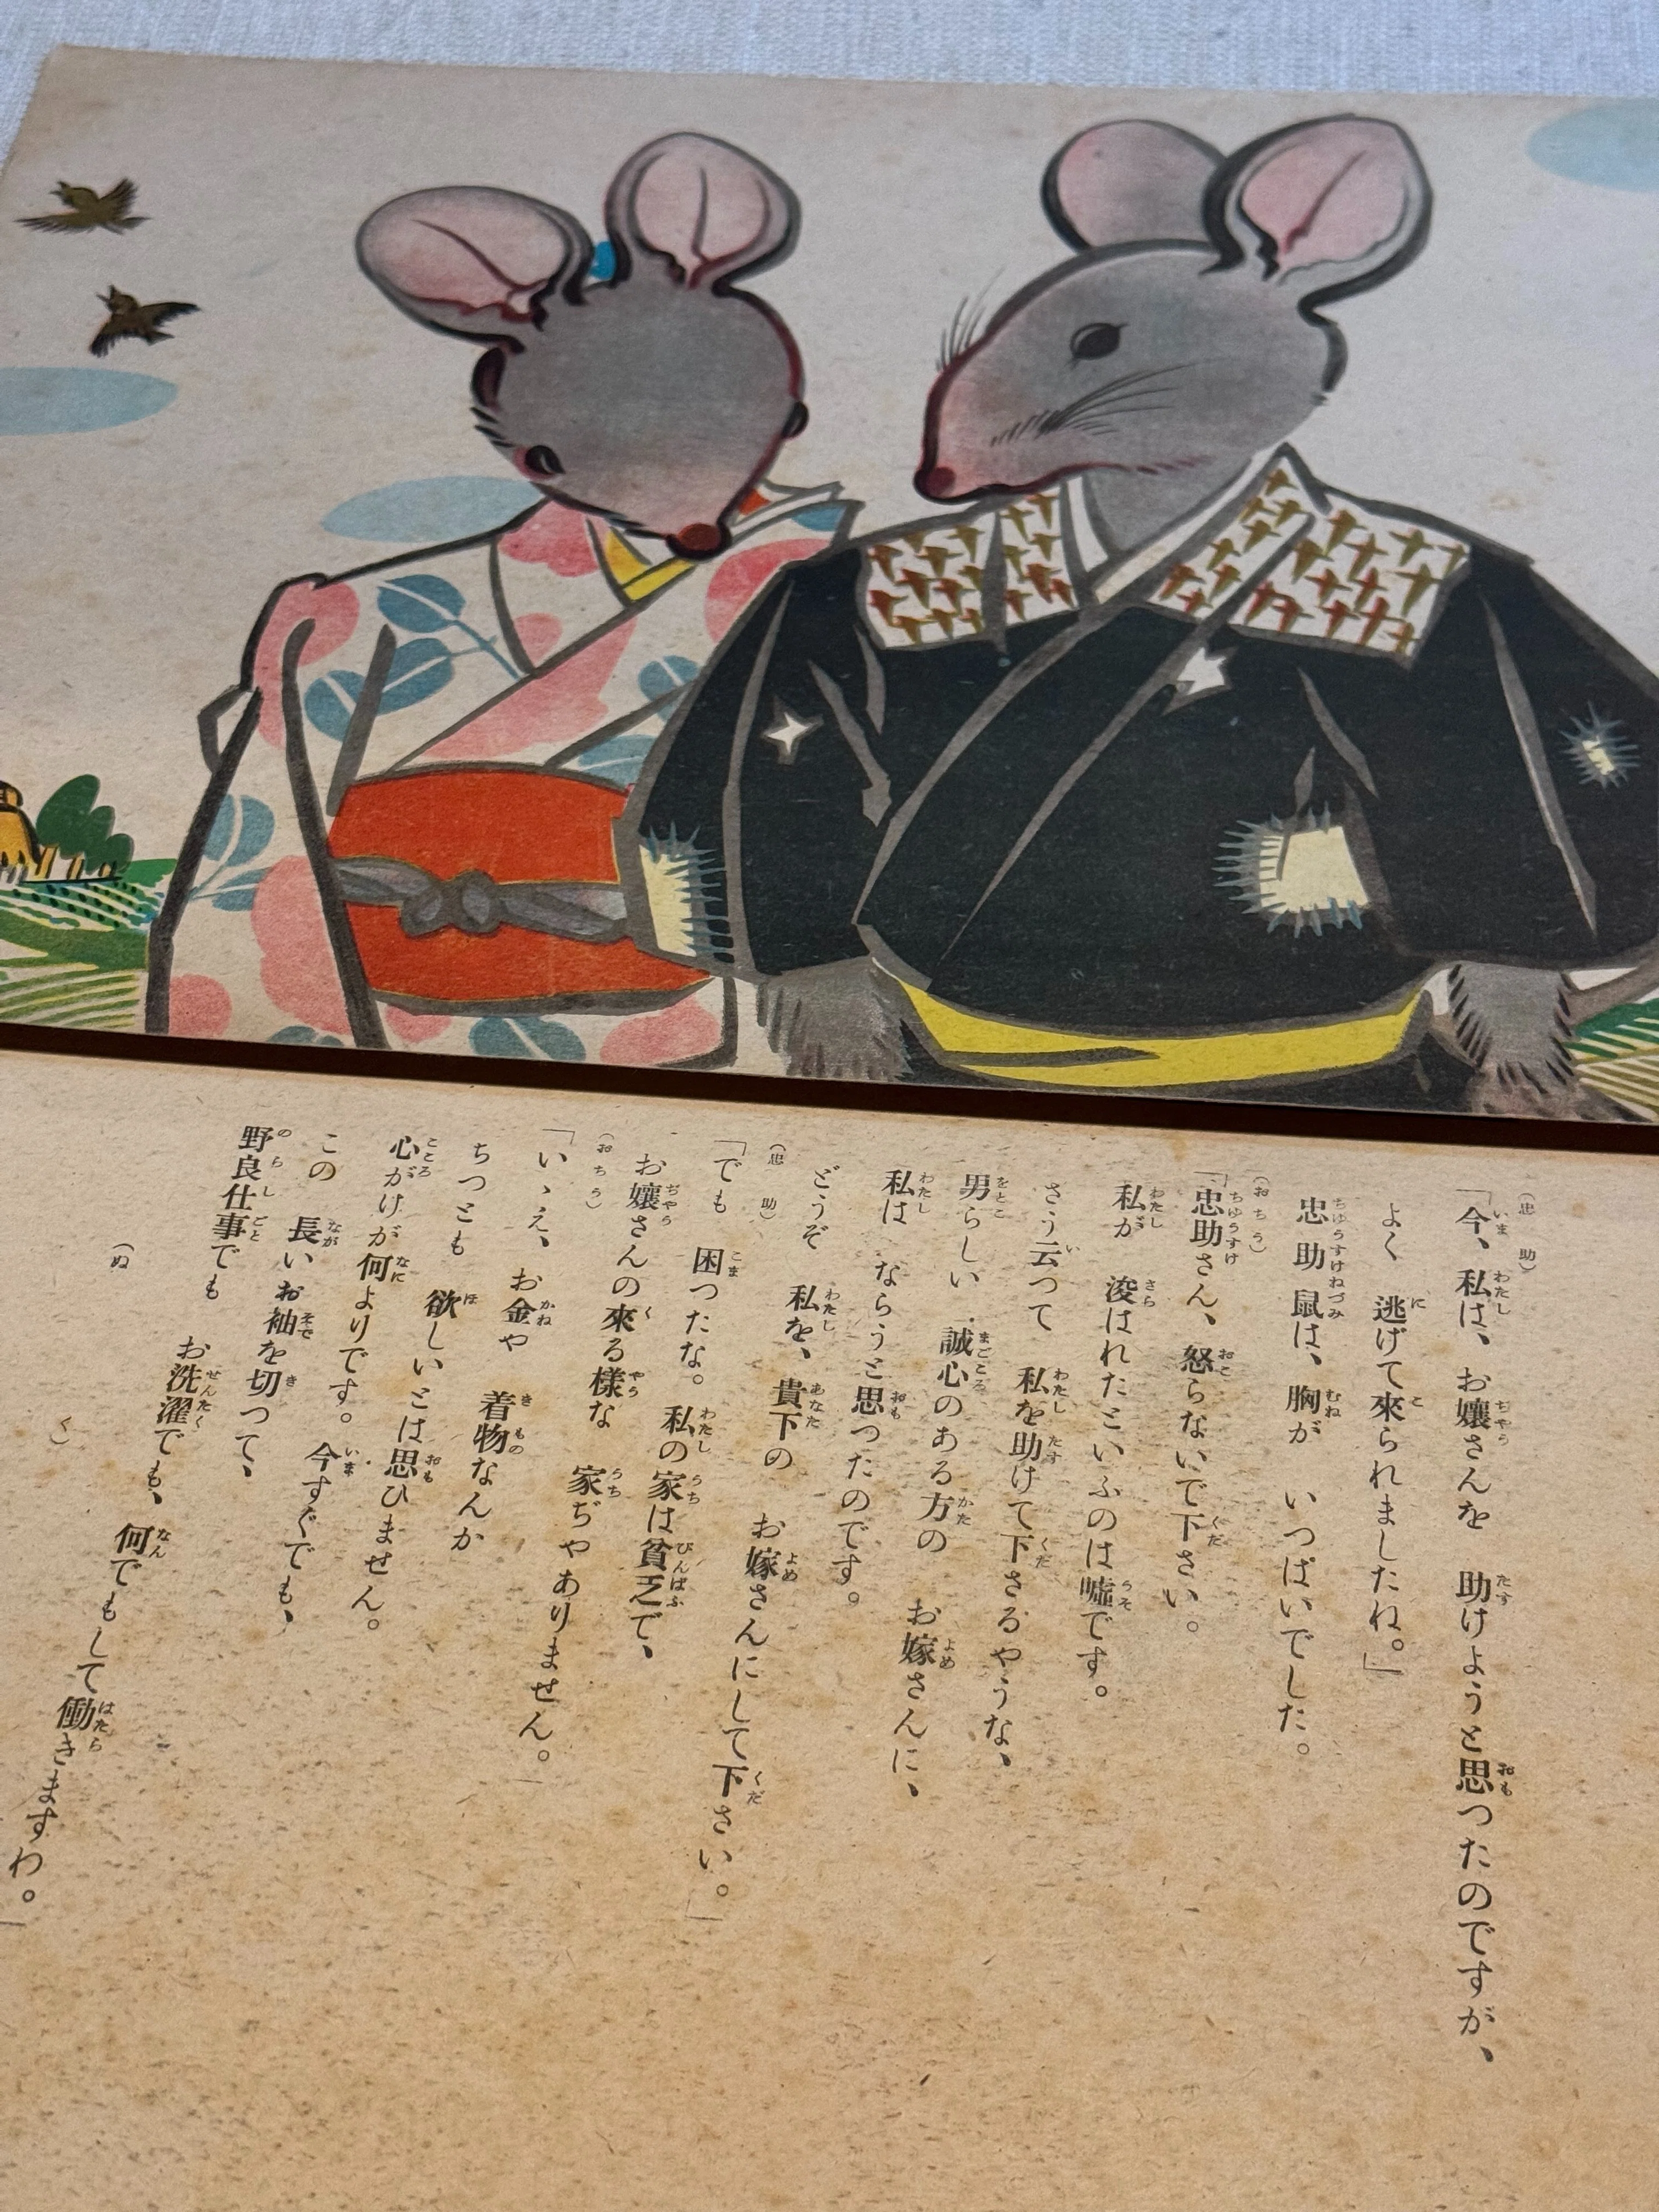 （忠助）
「今、私は、お孃さんを　助けようと思つたのですが、
よく　逃げて來られましたね。」
忠助鼠は、胸が　いつぱいでした。
（おちう）
「忠助さん、怒らないで下さい。
私が　浚はれたといふのは噓です。
さう云つて　私を助けて下さるやうな、
男らしい　誠心のある方の　お嫁さんに、
私は　ならうと思つたのです。
どうぞ　私を、貴下の　お嫁さんにして下さい。」
（忠助）
「でも　困つたな。私の家は貧乏で、
お孃さんの來る樣な　家ぢやありません。」
（おちう）
「いゝえ、お金や　着物なんか
ちつとも　欲しいとは思ひません。
心がけが何よりです。今すぐでも、
この　長いお袖を切つて、
野良仕事でも　お洗濯でも、何でもして働きますわ。」
（ぬく）